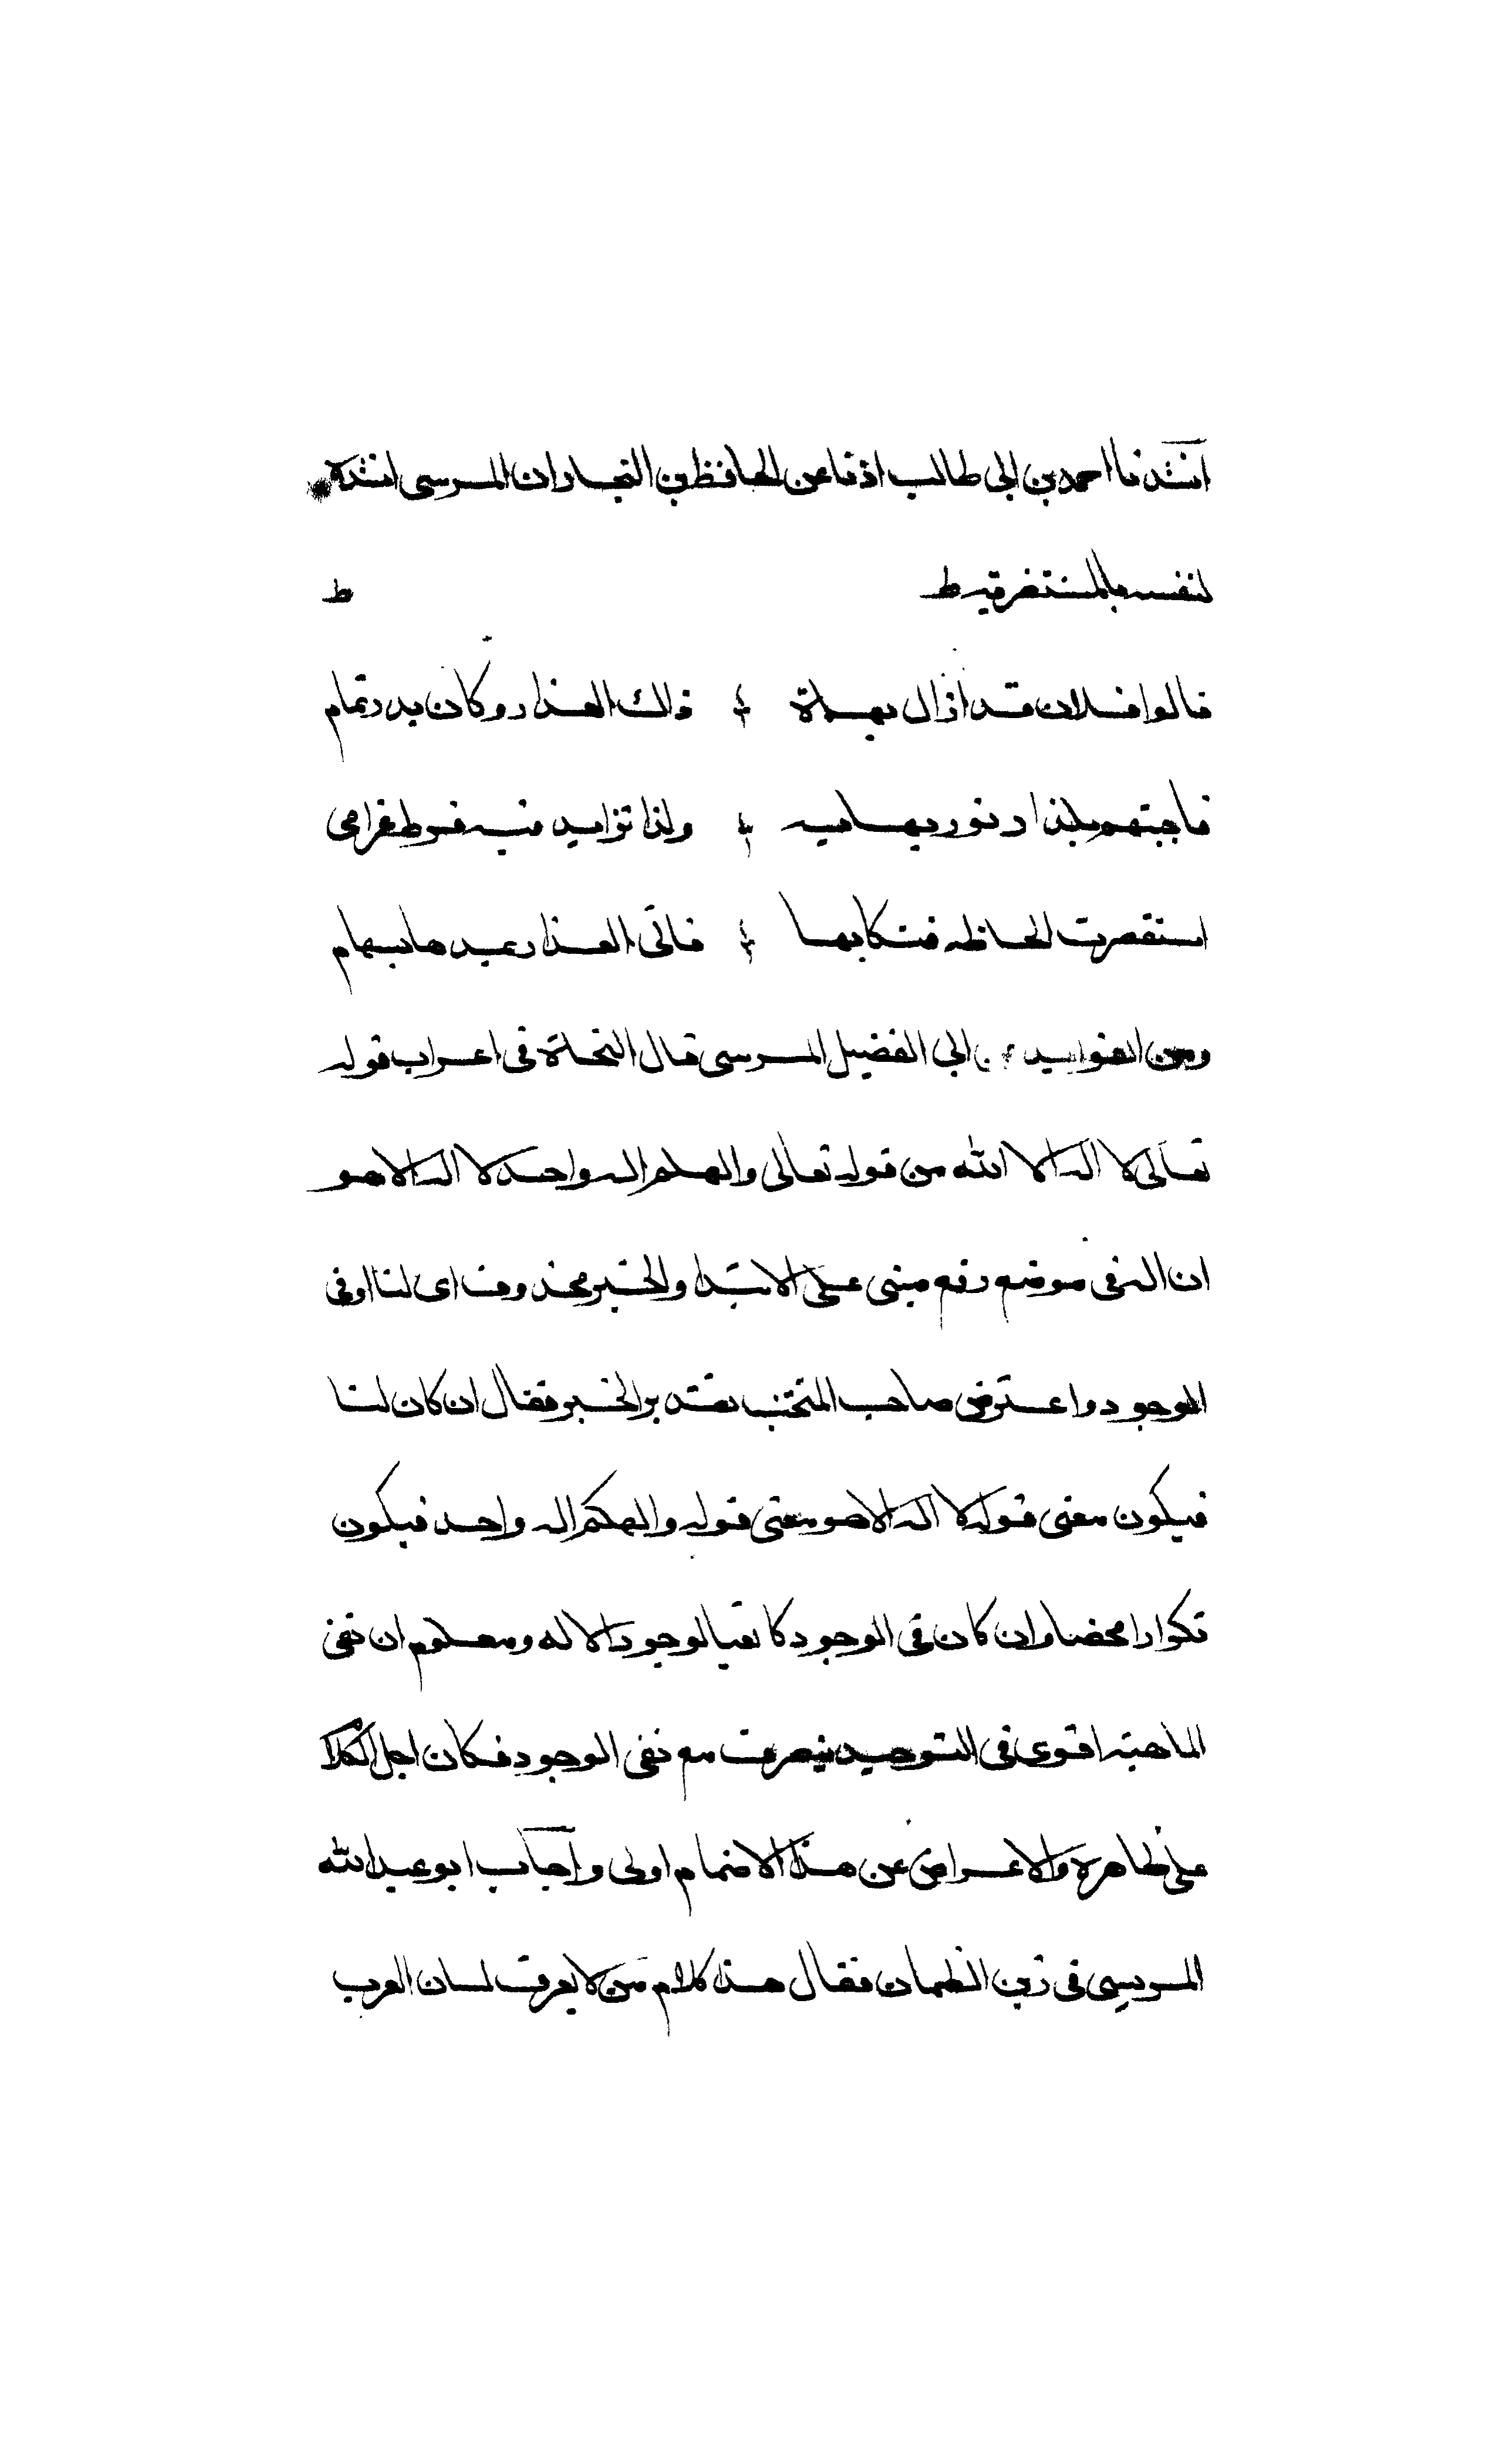 انشدنا احمد بن ابى طالب اذنا عن الحافظ بن النجار ان المرسى انشده
لنفسه بالمستنصرية ط ط
قالوا فلان قد ازال بهاة ذلك العذار وكان بدر تمام
فاجبتهم بل زاد نور بهايه ولذا تزايد فيه فرط غرامى
استقصرت الحاظه فتكابها فاتى العذار يمدها بسهام
ومن الفوايد عن ابى الفضل المرسى قال النحاة فى اعراب قوله
تعالى لا اله الا الله من قوله تعالى والهكم اله واحد لا اله الا هو
ان اله فى موضع رفع مبنى على الابتدا والخبر محذوف اى لنا او فى
الوجود واعترض صاحب المنتخب بتقدير الخبر فقال ان كان لنا
فيكون معنى قوله لا اله الا هو معنى قوله والهكم اله واحد فيكون
تكرارا محضا وان كان فى الوجود كا نفيا لوجود الا له ومعلوم ان نفى
الماهية اقوى فى التوحيد الصرف مع نفى الوجود فكان اجل الكلا
على ظاهره والاعراض عن هذا الاضمام اولى واجاب ابو عبد الله
المرسى فى رى الظمان فقال هذا كلام من لا يعرف لسان العرب